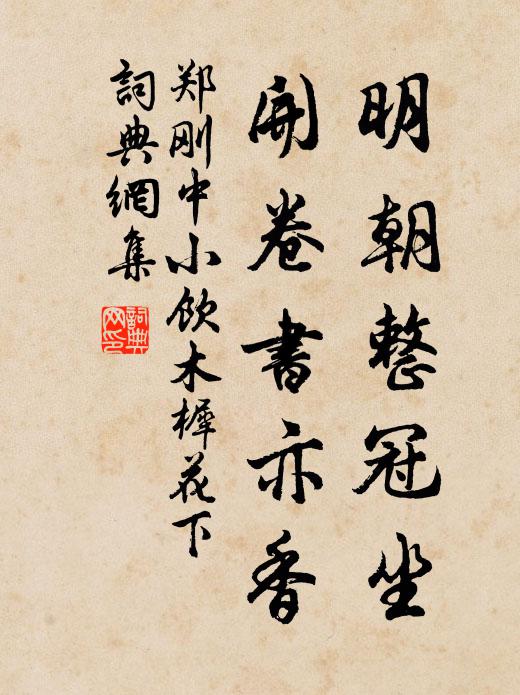 明朝整冠坐
开卷書亦香
郑刚中小饮木樨花下
詞典網集
詞典
网印